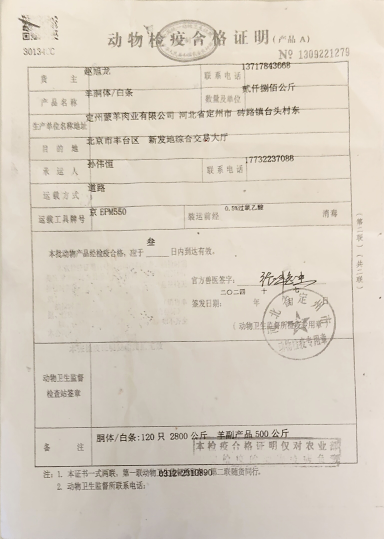 动物检疫合格证明(产品 A)
30134
№ 1309221279
货 主 赵旭龙 联系电话 13717843668
产品名称 羊胴体/白条 数量及单位 贰仟捌佰公斤
生产单位名称地址 定州蒙羊肉业有限公司 河北省定州市 砖路镇台头村东
目 的 地 北京市丰台区 新发地综合交易大厅
承 运 人 孙伟恒 联系电话 17732237088
运载方式 道路
运载工具牌号 京 装运前经 0.5%过氧乙酸 消毒
本批动物产品经检疫合格,应于 叁 日内到达有效。
官方兽医签字:
二〇二四 十 七
签发日期: 年 月 日
(动物卫生监督所检疫专用章)
河北省定州市
(第二联)(共二联)
动物卫生监督
检查站签章
备 注 胴体/白条:120 只 2800 公斤 羊副产品 500 公斤
本检疫合格证明仅对农业
注:1. 本证书一式两联,第一联动物 第二联随货同行。
0312-2910890
2. 动物卫生监督所联系电话: